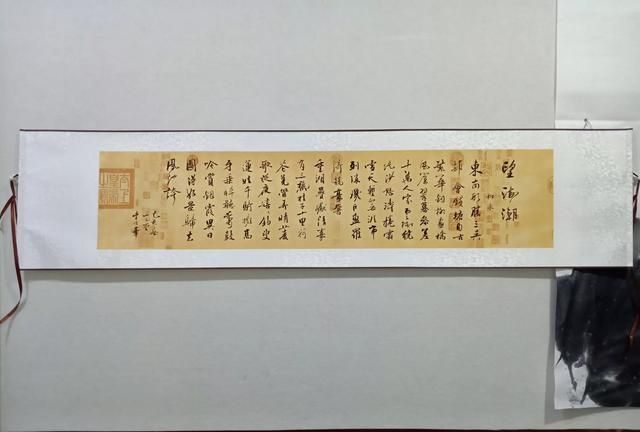 望海潮
東南形勝三吳
都會錢塘自古
繁華烟柳畫橋
風簾翠幕參差
十萬人家雲樹繞
堤沙怒濤捲霜
雪天塹無涯市
列珠璣戶盈羅
綺競豪奢
重湖疊巘清嘉
有三秋桂子十里荷
花羌管弄晴菱
歌泛夜嬉嬉釣叟
蓮娃千騎擁高
牙乘醉聽簫鼓
吟賞烟霞異日
圖將好景歸去
鳳池誇